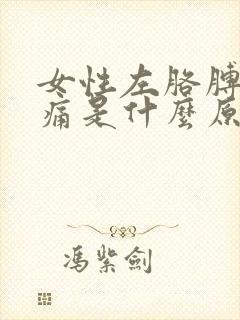 女性左胳膊
痛是什麼原
馮紫劍